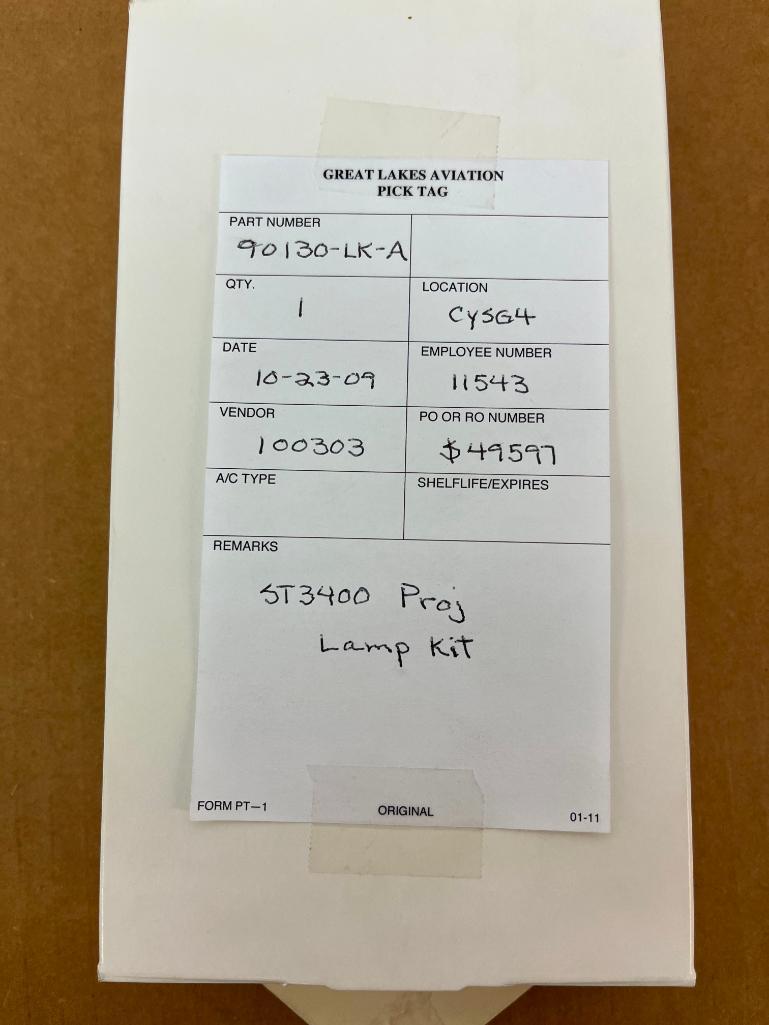 GREAT LAKES AVIATION
PICK TAG
PART NUMBER
90130-LK-A
QTY.
1
LOCATION
CYSG4
DATE
10-23-09
EMPLOYEE NUMBER
11543
VENDOR
100303
PO OR RO NUMBER
$49597
A/C TYPE
SHELFLIFE/EXPIRES
REMARKS
ST3400 Proj
Lamp Kit
FORM PT—1
ORIGINAL
01-11